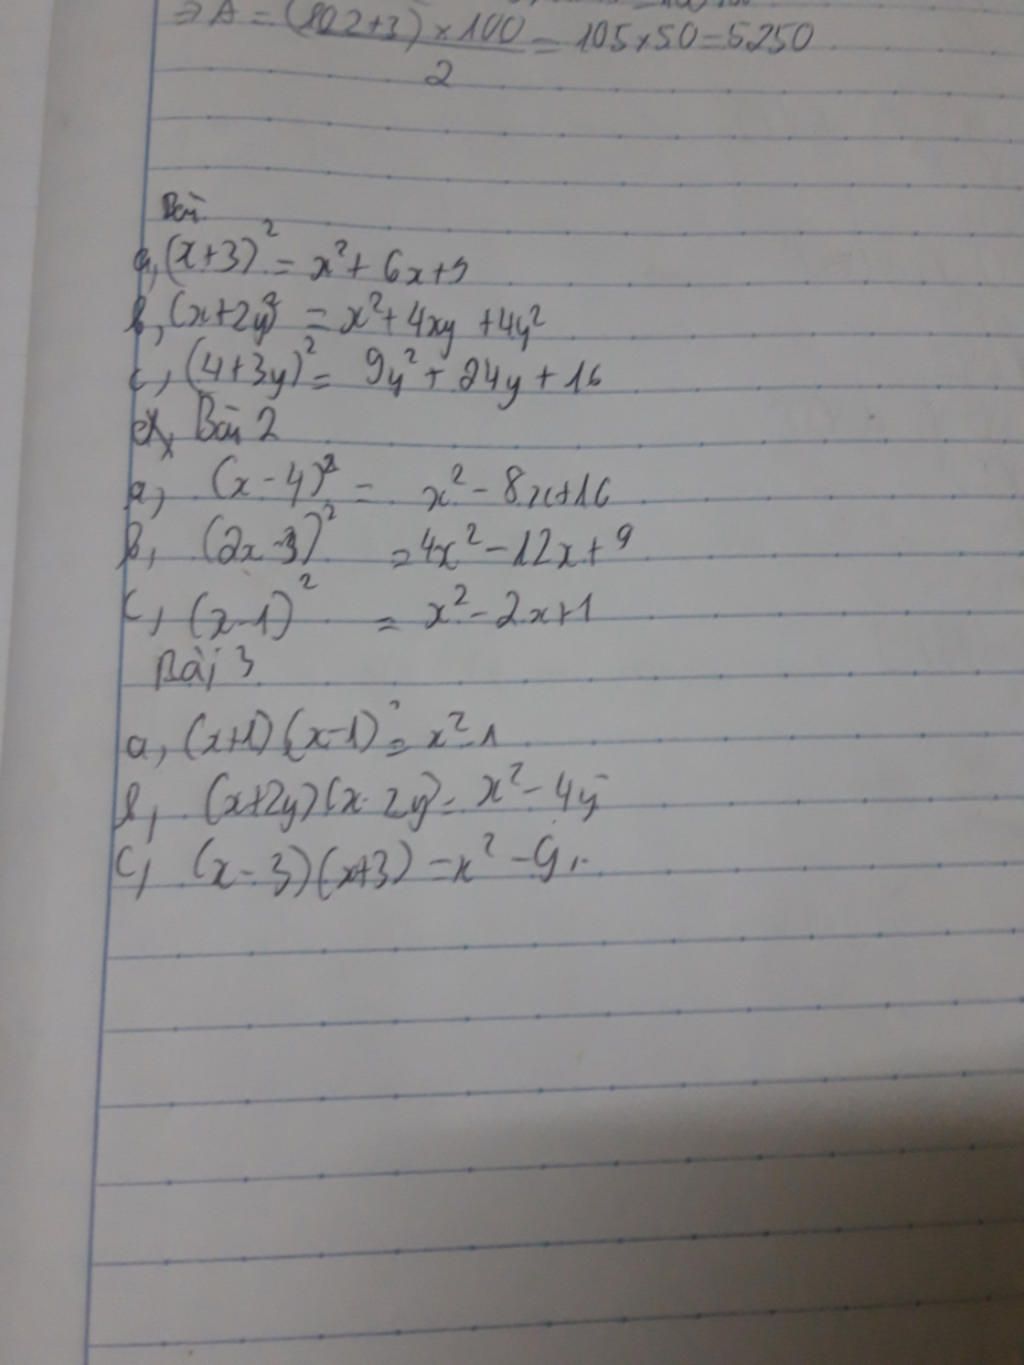 ⇒ A = (102+3) × 100 / 2 = 105 × 50 = 5250
Bài
a, (x+3)² = x² + 6x + 9
b, (x+2y)² = x² + 4xy + 4y²
c, (4+3y)² = 9y² + 24y + 16
Bài 2
a, (x-4)² = x² - 8x + 16
b, (2x-3)² = 4x² - 12x + 9
c, (x-1)² = x² - 2x + 1
Bài 3
a, (x+1)(x-1) = x² - 1
b, (x+2y)(x-2y) = x² - 4y²
c, (x-3)(x+3) = x² - 9